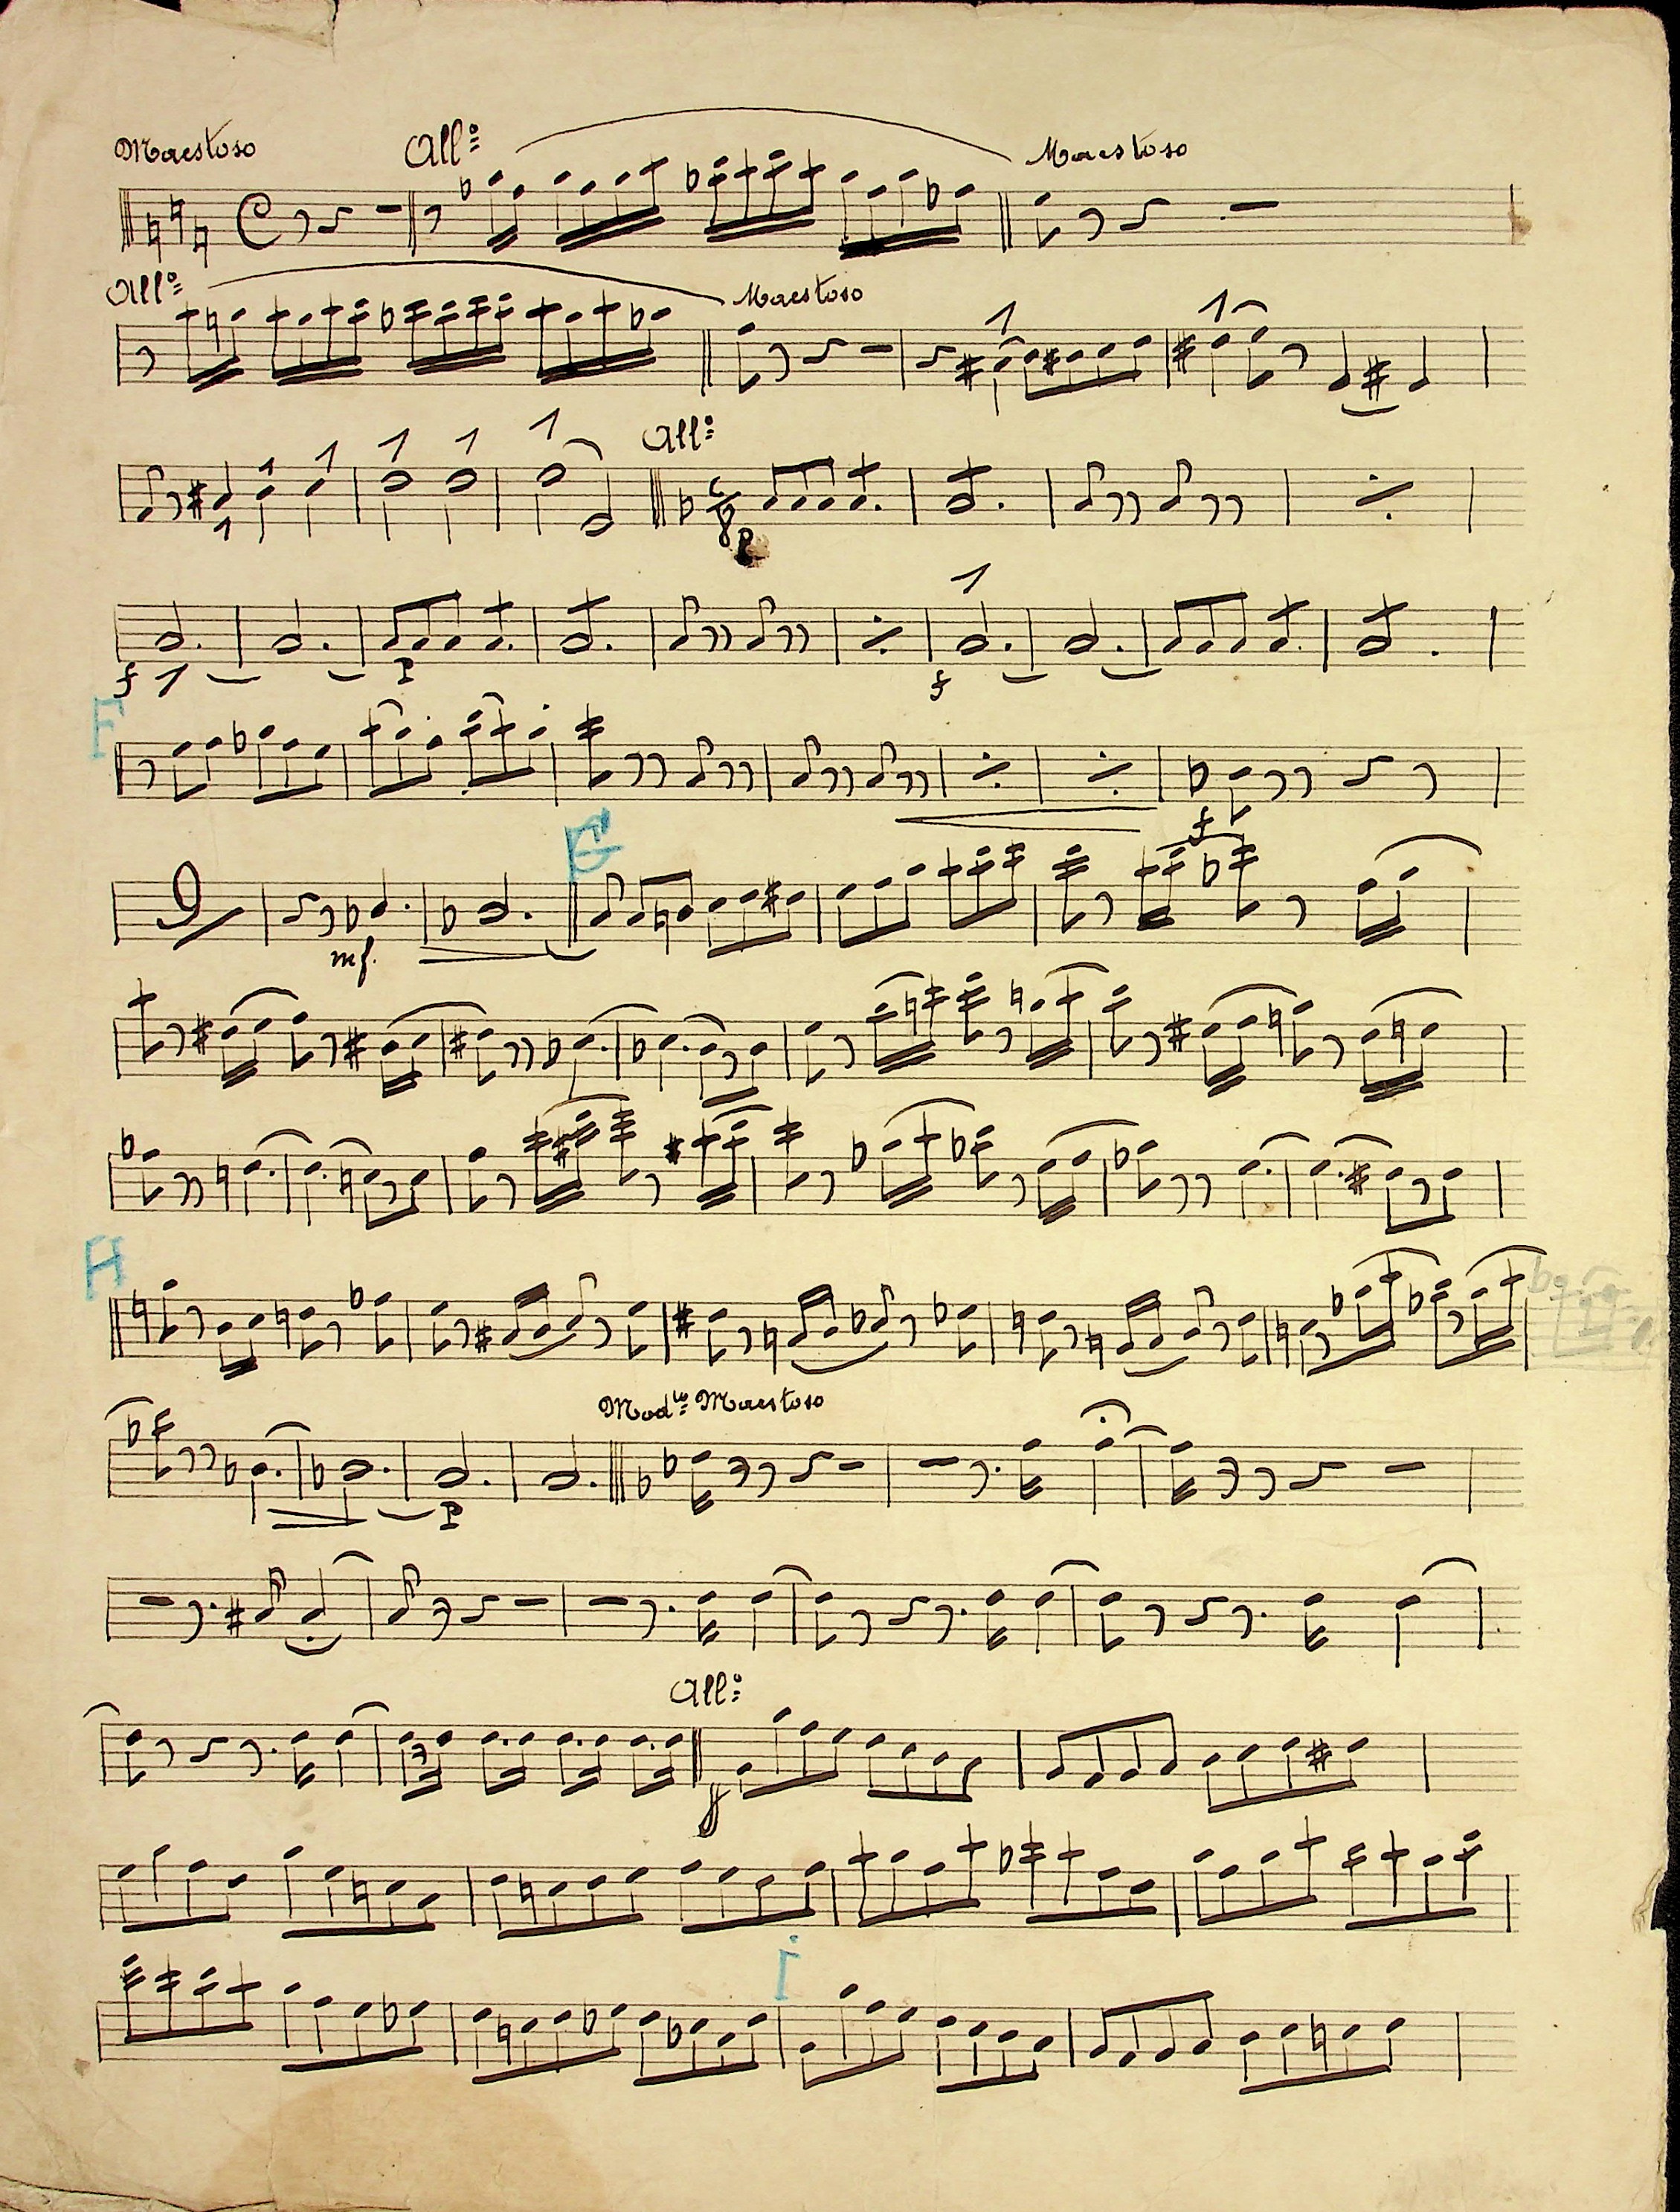 Maestoso All:º Maestoso
All:º Maestoso
All:º
p
f p f
F
f
G
mf.
H
Mod:to Maestoso
p
All:º
f
i